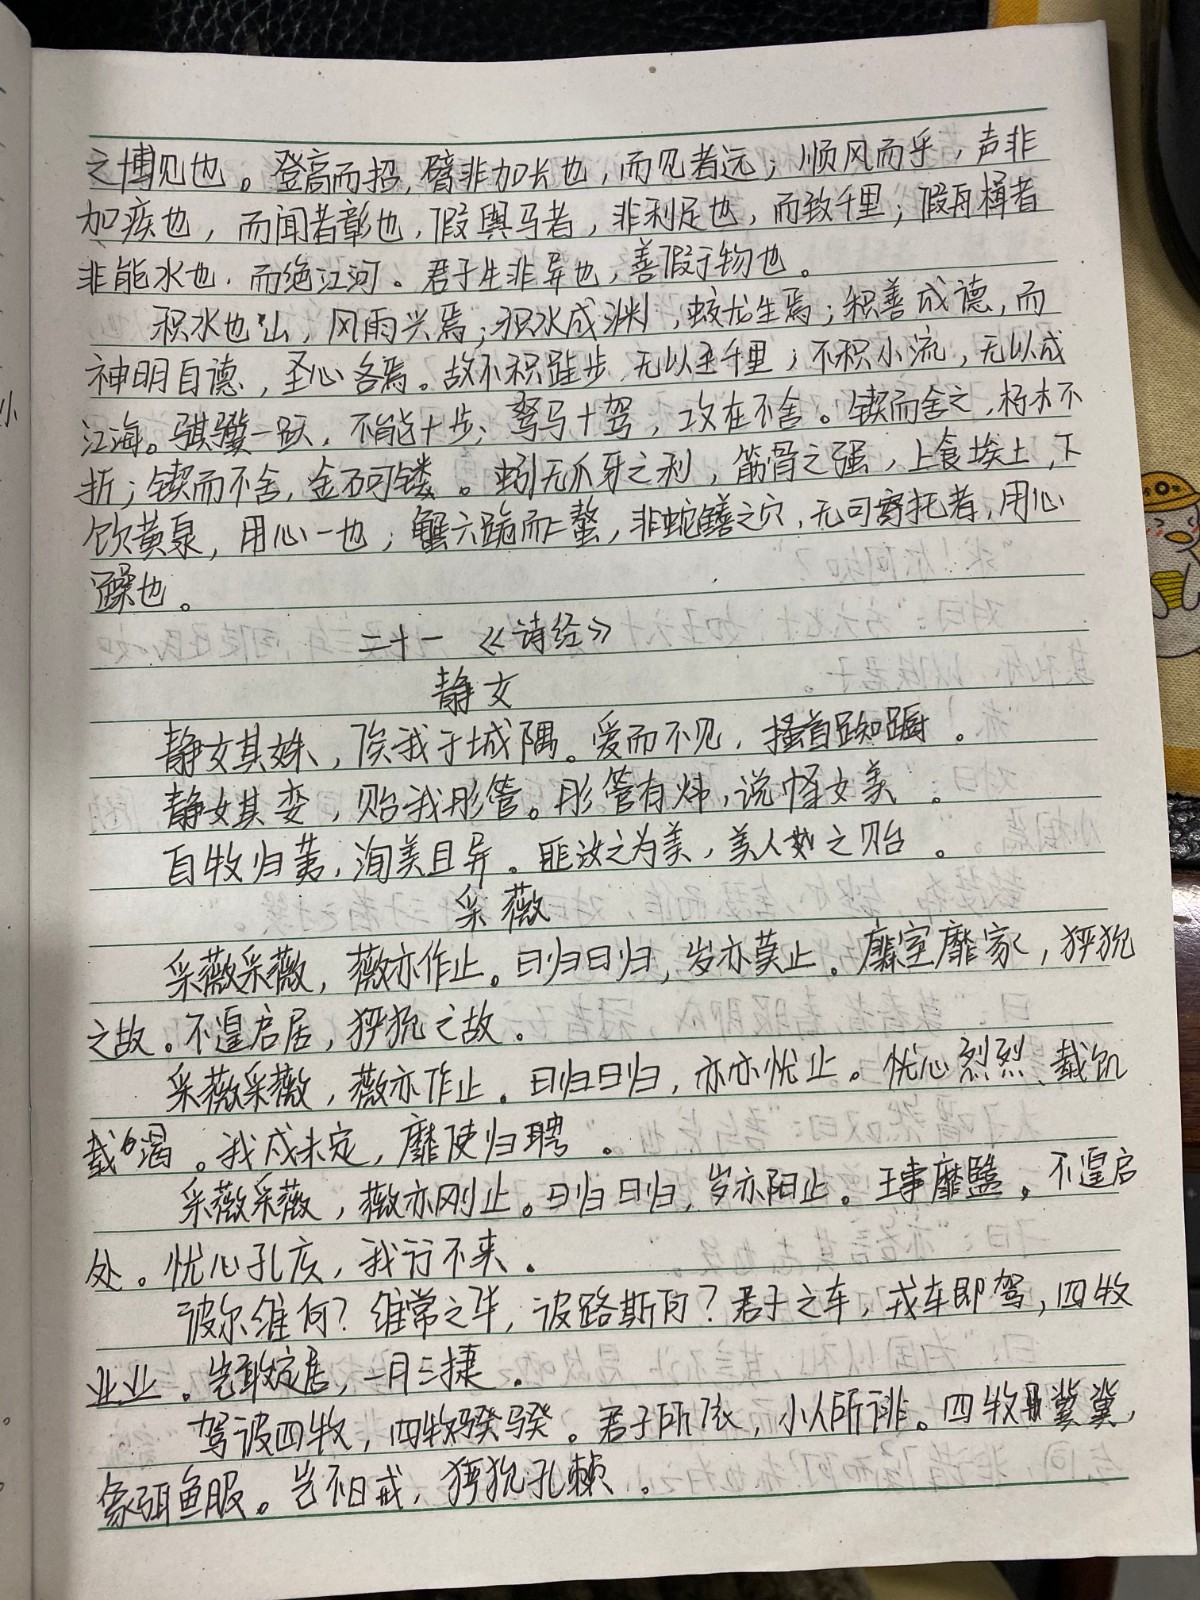 之博见也。登高而招,臂非加长也,而见者远;顺风而乎,声非
加疾也,而闻者彰也,假舆马者,非利足也,而致千里;假舟楫者
非能水也,而绝江河。君子生非异也,善假于物也。
积水也山,风雨兴焉;积水成渊,蛟龙生焉;积善成德,而
神明自德,圣心各焉。故不积跬步,无以至千里;不积小流,无以成
江海。骐骥一跃,不能十步;驽马十驾,攻在不舍。锲而舍之,朽木不
折;锲而不舍,金石可镂。蚓无爪牙之利,筋骨之强,上食埃土,下
饮黄泉,用心一也;蟹六跪而二螯,非蛇鳝之穴,无可寄托者,用心
躁也。
二十一 《诗经》
静女
静女其姝,俟我于城隅。爱而不见,搔首踟蹰。
静女其娈,贻我彤管。彤管有炜,说怿女美。
自牧归荑,洵美且异。匪汝之为美,美人之贻。
采薇
采薇采薇,薇亦作止。曰归曰归,岁亦莫止。靡室靡家,猃狁
之故。不遑启居,猃狁之故。
采薇采薇,薇亦作止。曰归曰归,亦亦忧止。忧心烈烈、载饥
载渴。我戍未定,靡使归聘。
采薇采薇,薇亦刚止。曰归曰归,岁亦阳止。王事靡盬。不遑启
处。忧心孔疚,我行不来。
彼尔维何?维常之华,彼路斯何?君子之车,戎车即驾,四牧
业业。岂敢定居,一月三捷。
驾彼四牧,四牧骙骙。君子所依,小人所诽。四牧翼翼,
象弭鱼服。岂不日戒,猃狁孔棘。